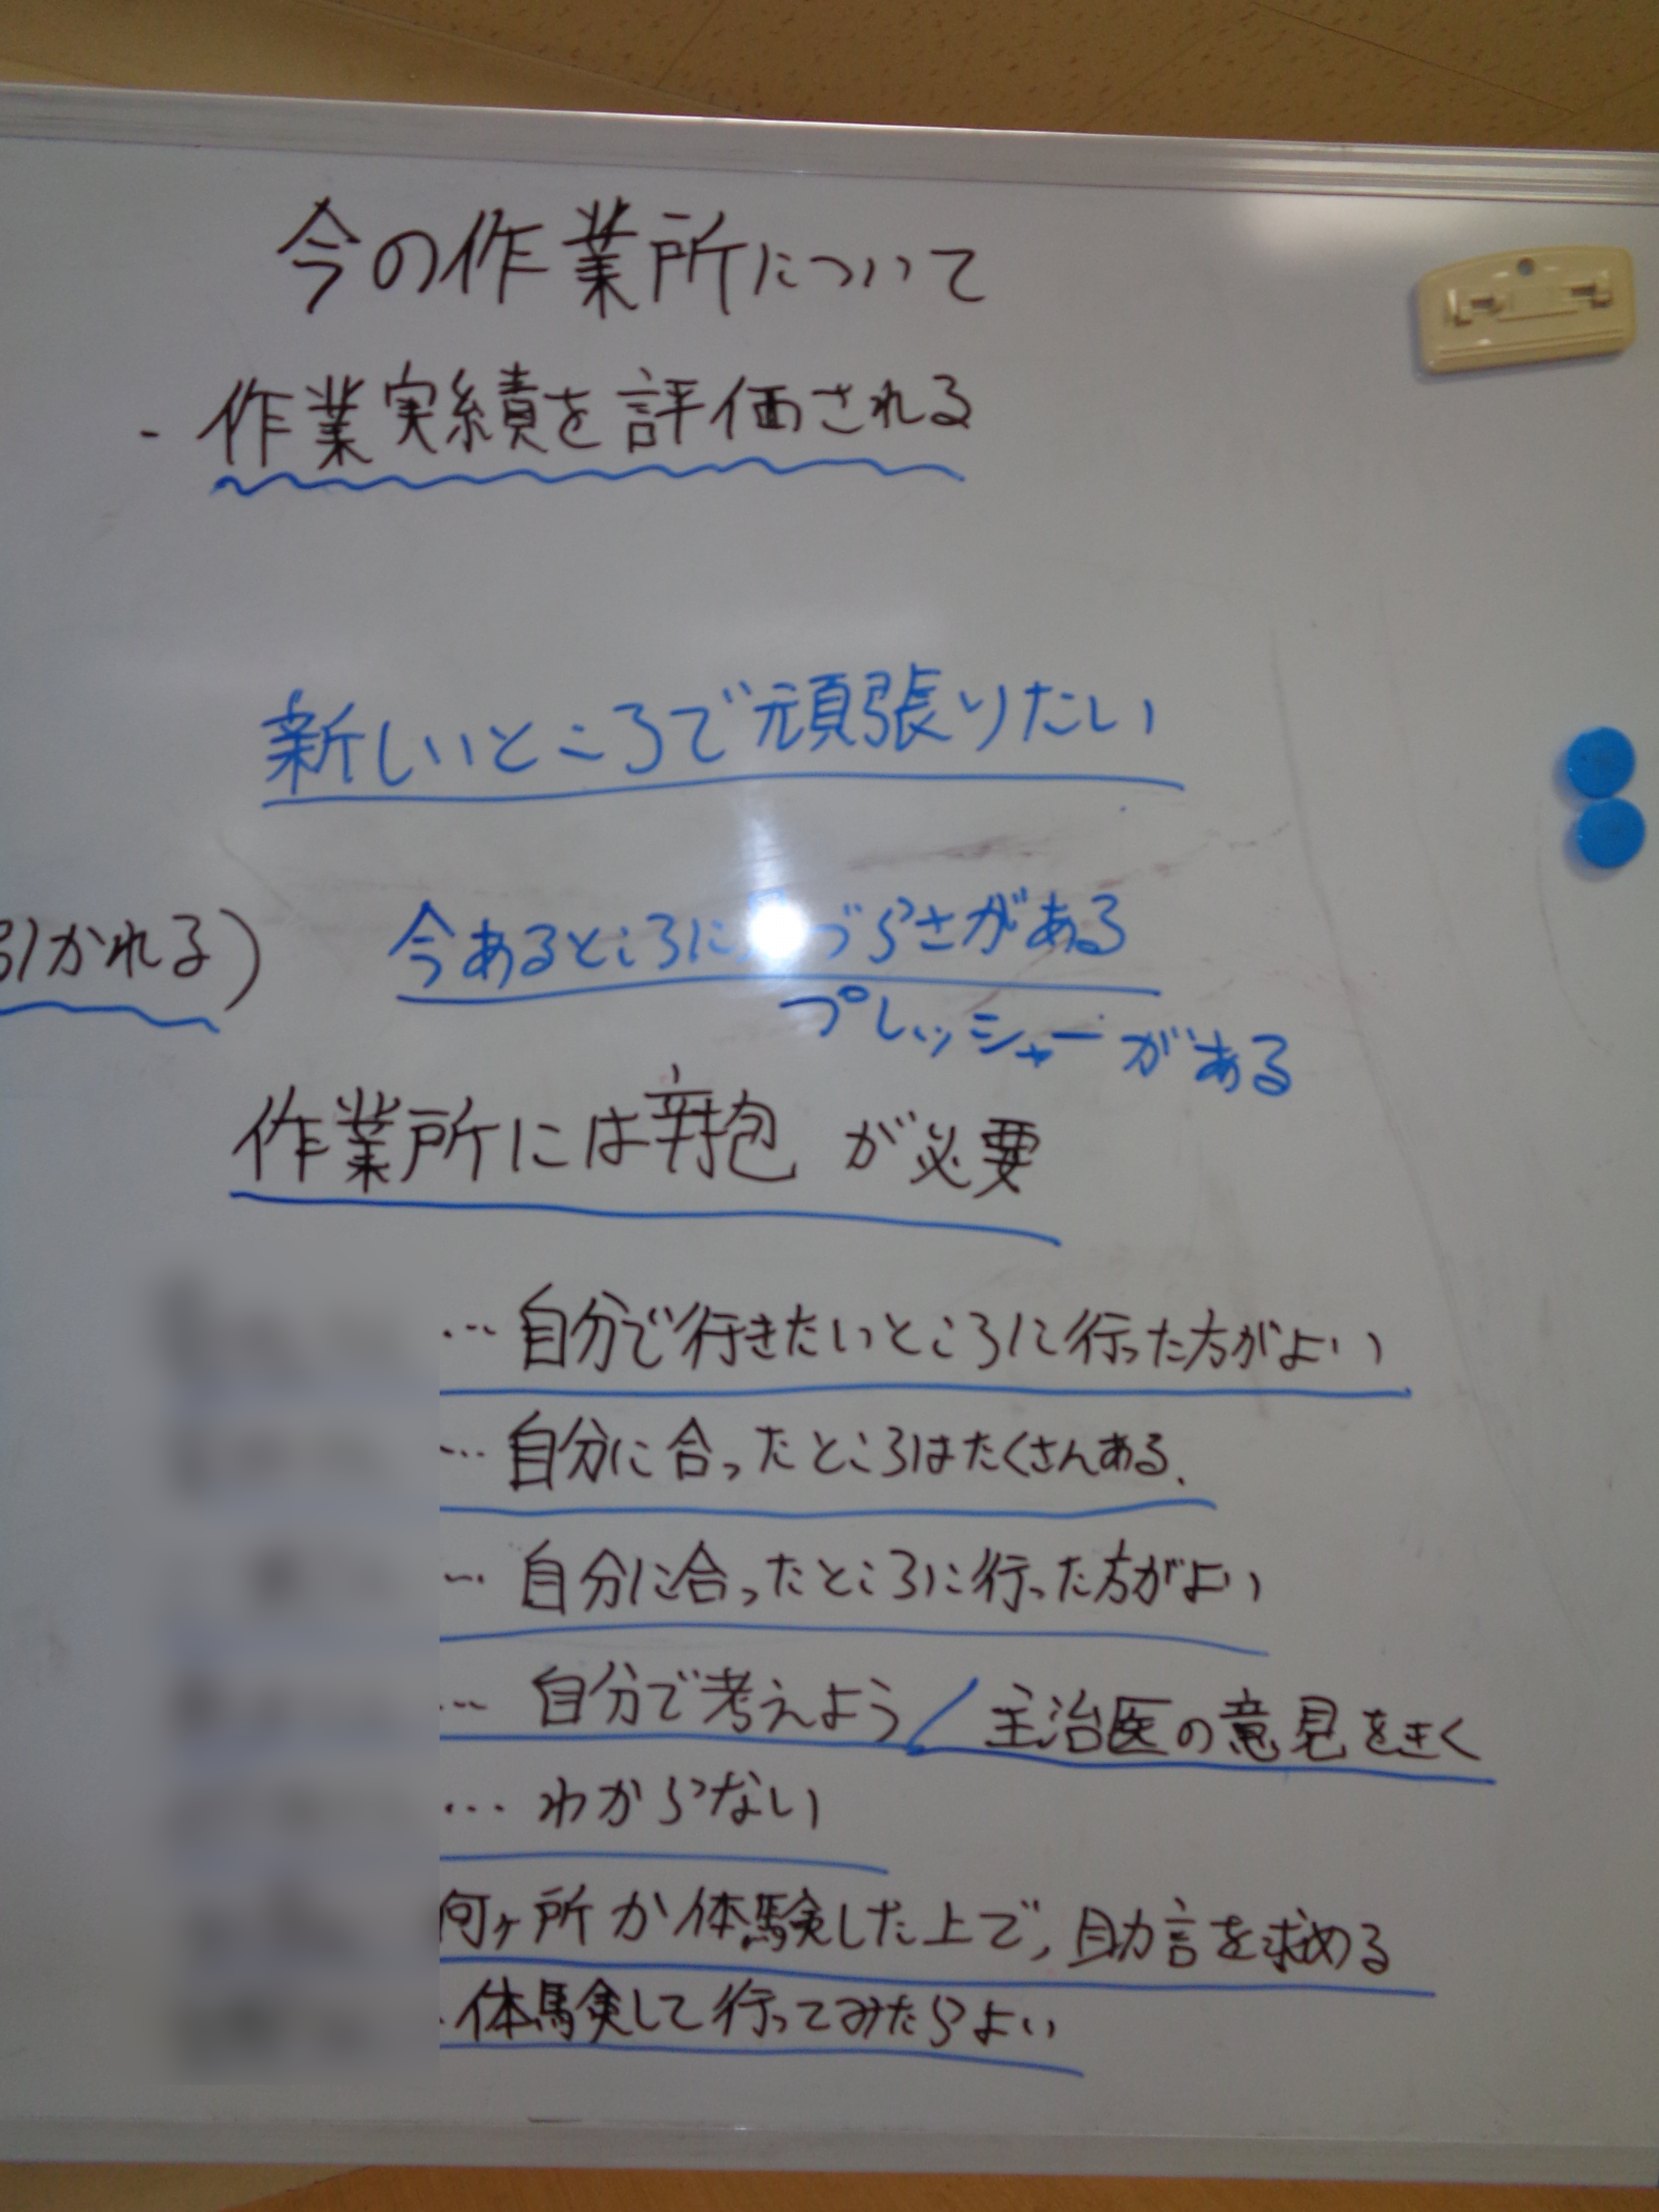 今の作業所について
- 作業実績を評価される
新しいところで頑張りたい
引かれる)
今あるところに づらさがある
プレッシャーがある
作業所には辛抱が必要
… 自分で行きたいところに行った方がよい
… 自分に合ったところはたくさんある.
… 自分に合ったところに行った方がよい
… 自分で考えよう/主治医の意見をきく
… わからない
何ヶ所か体験した上で,助言を求める
体験して行ってみたらよい